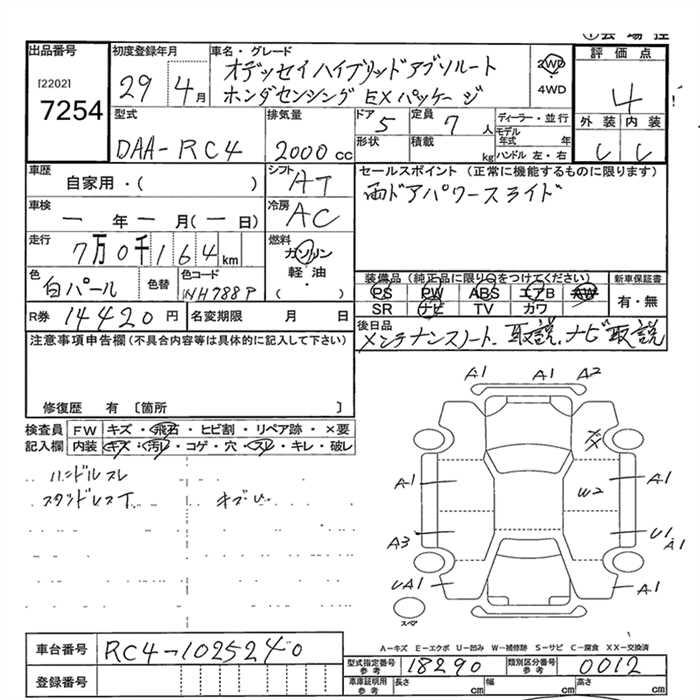 ①会場控
出品番号
[2202]
7254
初度登録年月
29年 4月
車名・グレード
オデッセイハイブリッドアブソルート
ホンダセンシング EXパッケージ
2WD
4WD
評価点
4
外装 内装
型式
DAA-RC4
排気量
2000cc
ドア
5
定員
7人
形状
積載
kg
ディーラー・並行
モデル年式 年
ハンドル 左・右
車歴
自家用・( )
シフト
AT
セールスポイント (正常に機能するものに限ります)
両ドアパワースライド
車検
ー年ー月(ー日)
冷房
AC
走行
7万0千164km
燃料
ガソリン
軽油
( )
色
白パール
色替
色コード
NH788P
装備品(純正品に限り○をつけてください)
PS PW ABS エアB AW
SR ナビ TV カワ
新車保証書
有・無
R券 14420円
名変期限 月 日
後日品
メンテナンスノート、取説、ナビ取説
注意事項申告欄(不具合内容等は具体的に記入して下さい)
修復歴 有 〔箇所 〕
検査員記入欄
FW キズ・飛石・ヒビ割・リペア跡・×要
内装 キズ・汚れ・コゲ・穴・スレ・キレ・破レ
ハンドルスレ
A1 A1 A2
XX
A1 W2 A1
A3 U1 A1
UA1 A1
スマ
A-キズ E-エクボ U-凹み W-補修跡 S-サビ C-腐食 XX-交換済
車台番号
RC4-1025240
登録番号
型式指定番号 参考
18290
類別区分番号 参考
0012
車庫証明用 参考
長さ cm
幅 cm
高さ cm